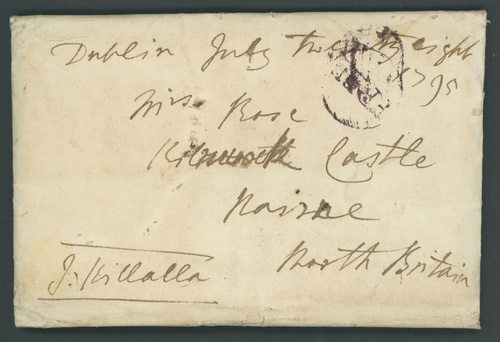 Dublin July twenty eight
1795
Mrs. Rose
Kilravock Castle
Nairne
North Britain
J: Killalla